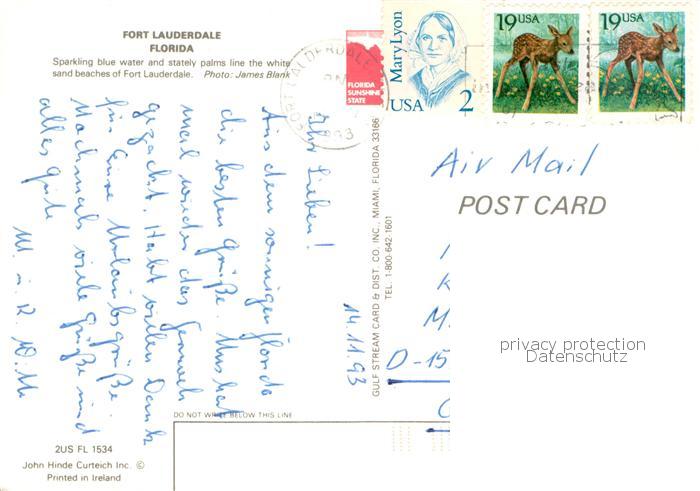 FORT LAUDERDALE
FLORIDA
Sparkling blue water and stately palms line the white
sand beaches of Fort Lauderdale. Photo: James Blank
FLORIDA
SUNSHINE
STATE
Mary Lyon
USA 2
19 USA
19 USA
Air Mail
POST CARD
14.11.93
Ihr Lieben!
Aus dem sonnigen Florida
die besten Grüße. Uns hat
mal wieder das Fernweh
gepackt. Habt vielen Dank
für Eure Urlaubsgrüße.
Nochmals viele Grüße und
alles Gute
M. u. R.
GULF STREAM CARD & DIST. CO. INC., MIAMI, FLORIDA 33166
TEL. 1-800-642-1601
K
M.
D-15
privacy protection
Datenschutz
DO NOT WRITE BELOW THIS LINE
2US FL 1534
John Hinde Curteich Inc. ©
Printed in Ireland